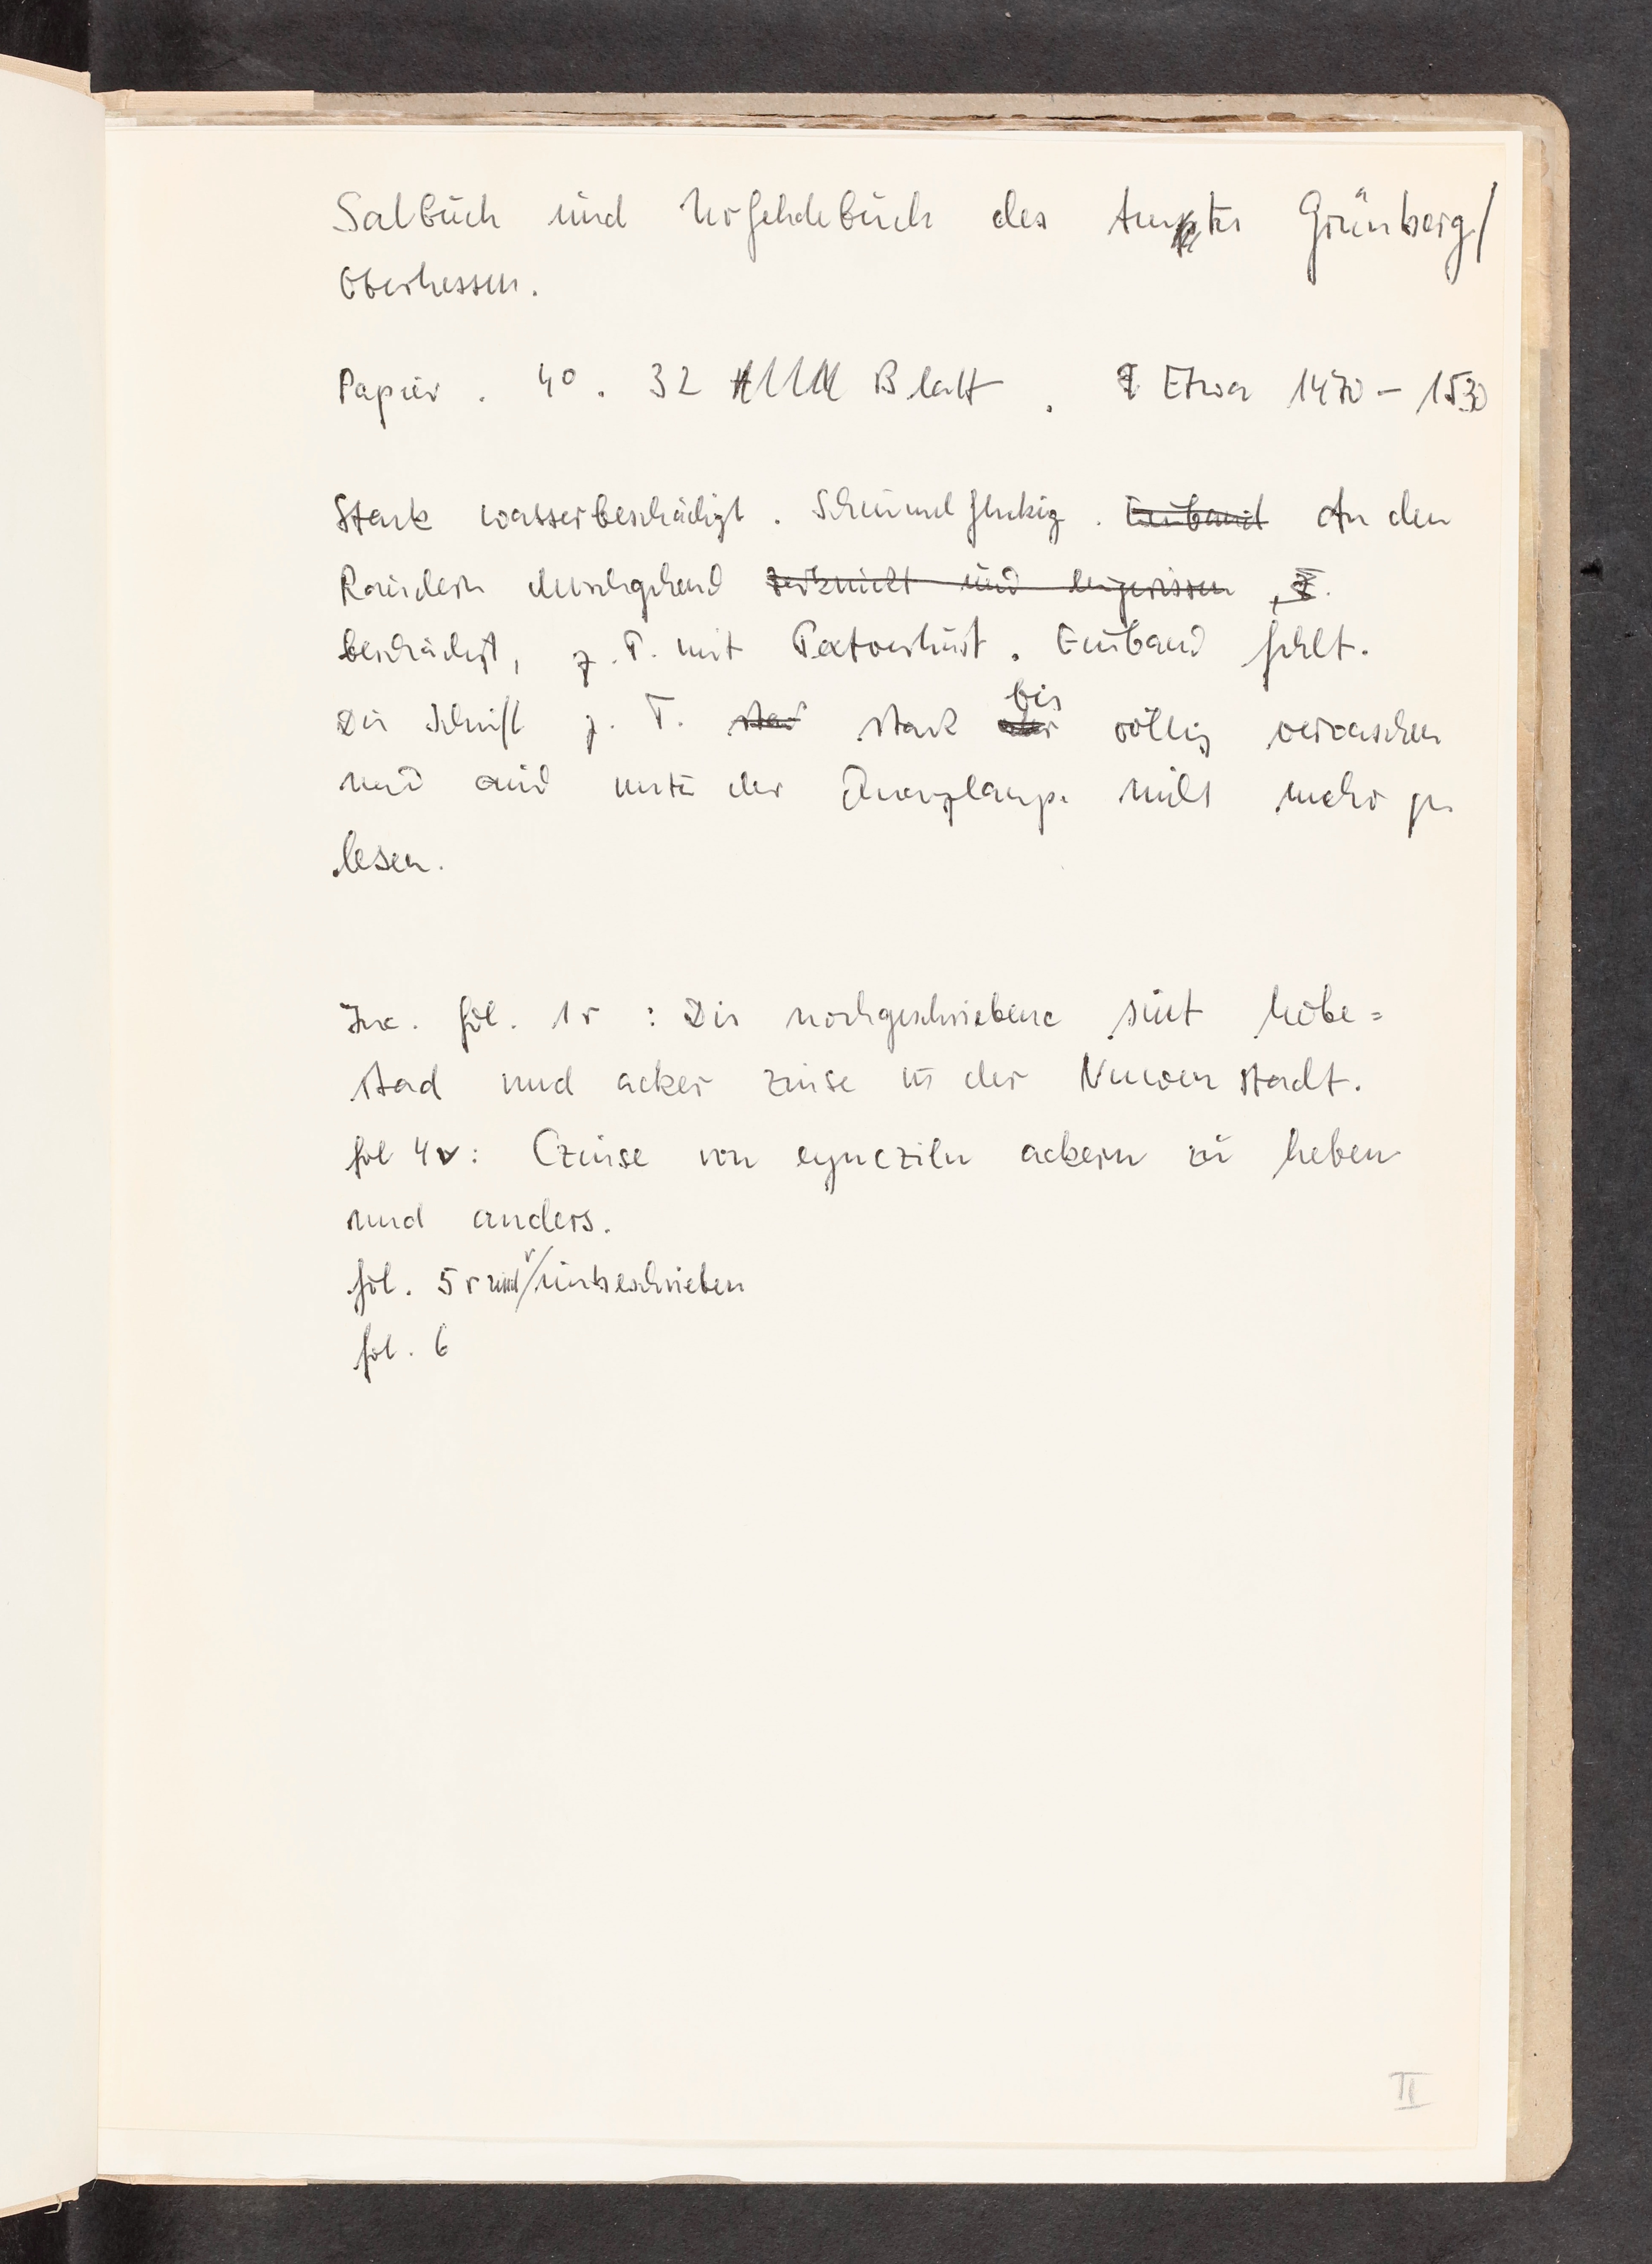 Salbuch und Urfehdebuch des Amptes Grünberg/
Oberhessen.
Papier. 4°. 32 Blatt. Etwa 1470 – 1530
Stark wasserbeschädigt. Schimmelfleckig. Einband An den
Rändern durchgehend zerknickt und eingerissen,
beschädigt, z. T. mit Textverlust. Einband fehlt.
Die Schrift z. T. stark bis völlig verwaschen
und auch unter der Quarzlampe nicht mehr zu
lesen.
Inc. fol. 1r : Dis nochgeschriebene sint hobe=
stad und acker zinse in der Nuwen stadt.
fol 4v: Czinse von eyncziln ackern zu heben
und anders.
fol. 5 r und v/unbeschrieben
fol. 6
II